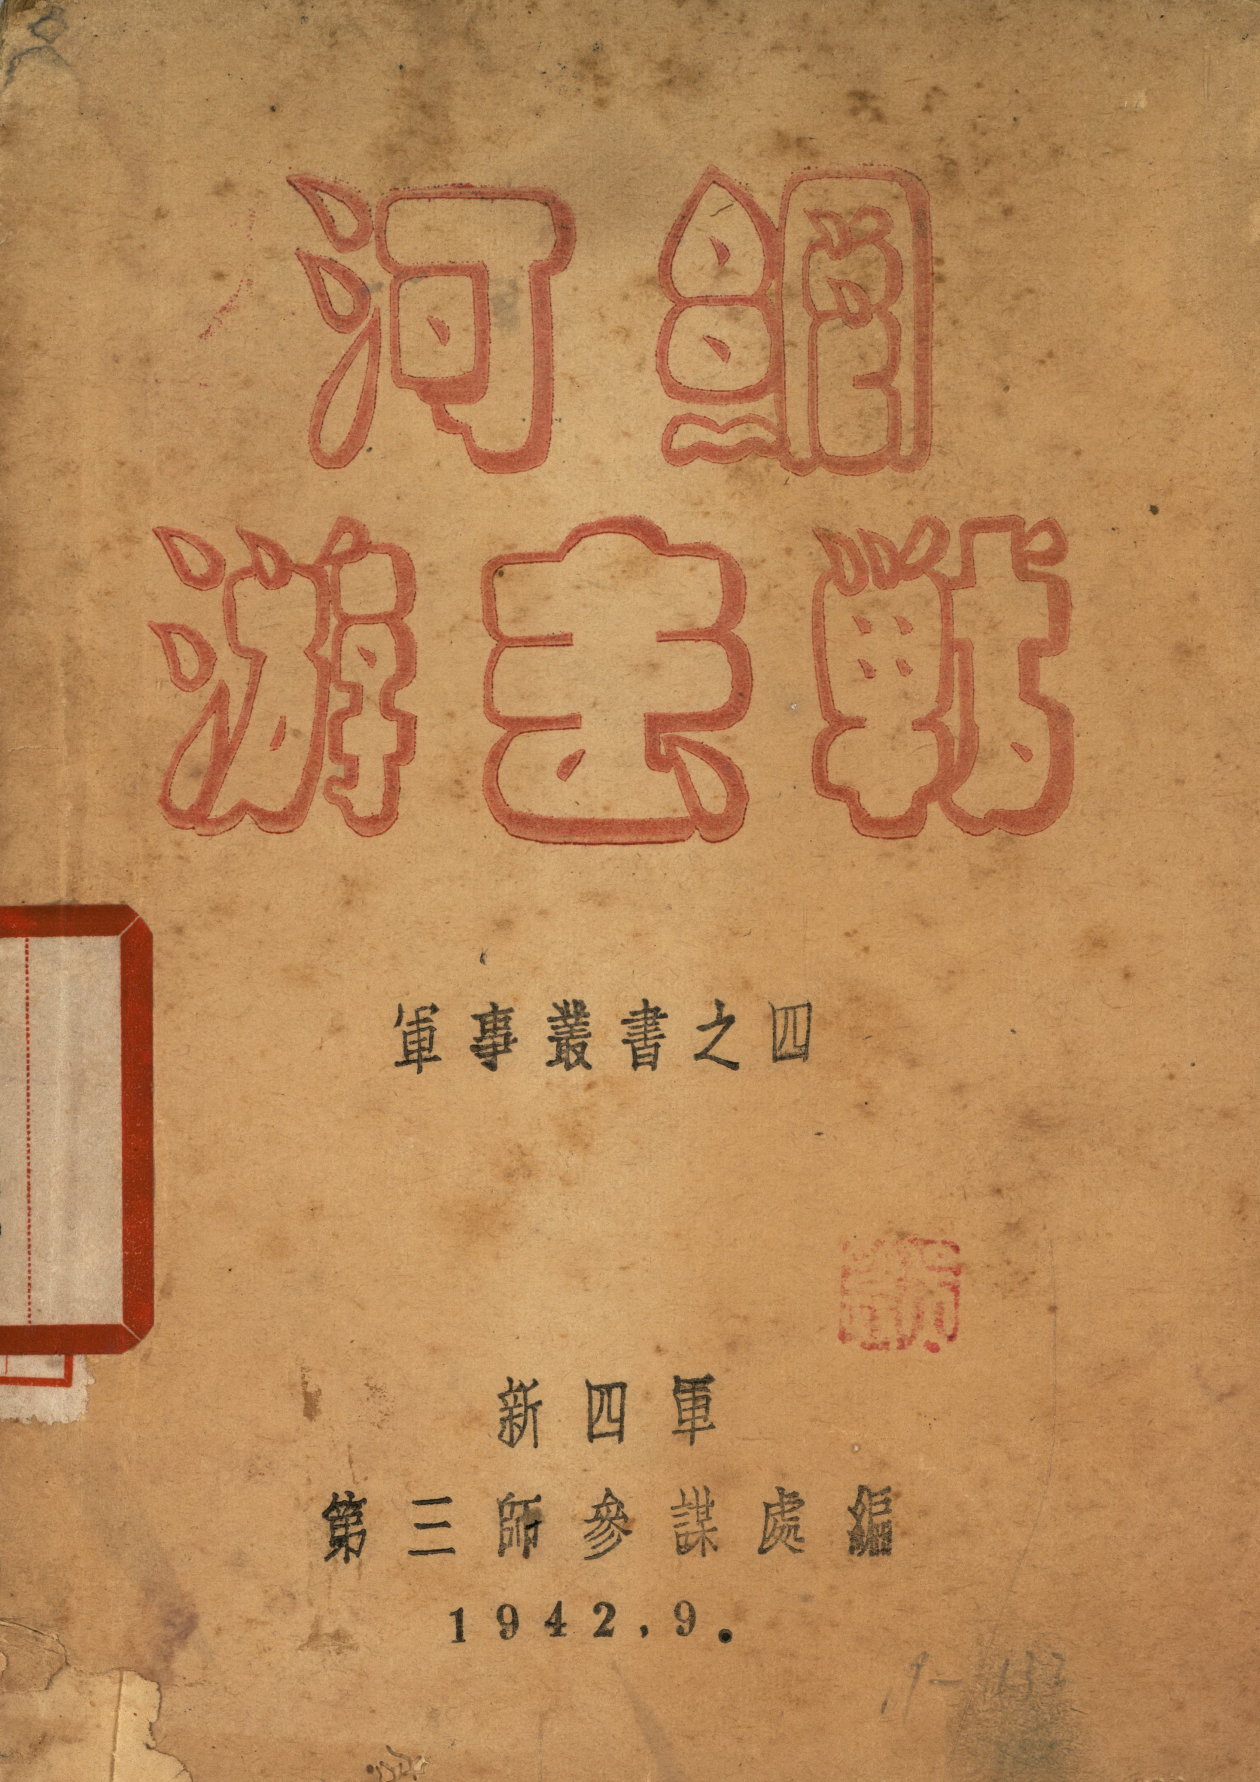 河網
游击戰
軍事叢書之四
新四軍
第三師參謀處編
1942.9.